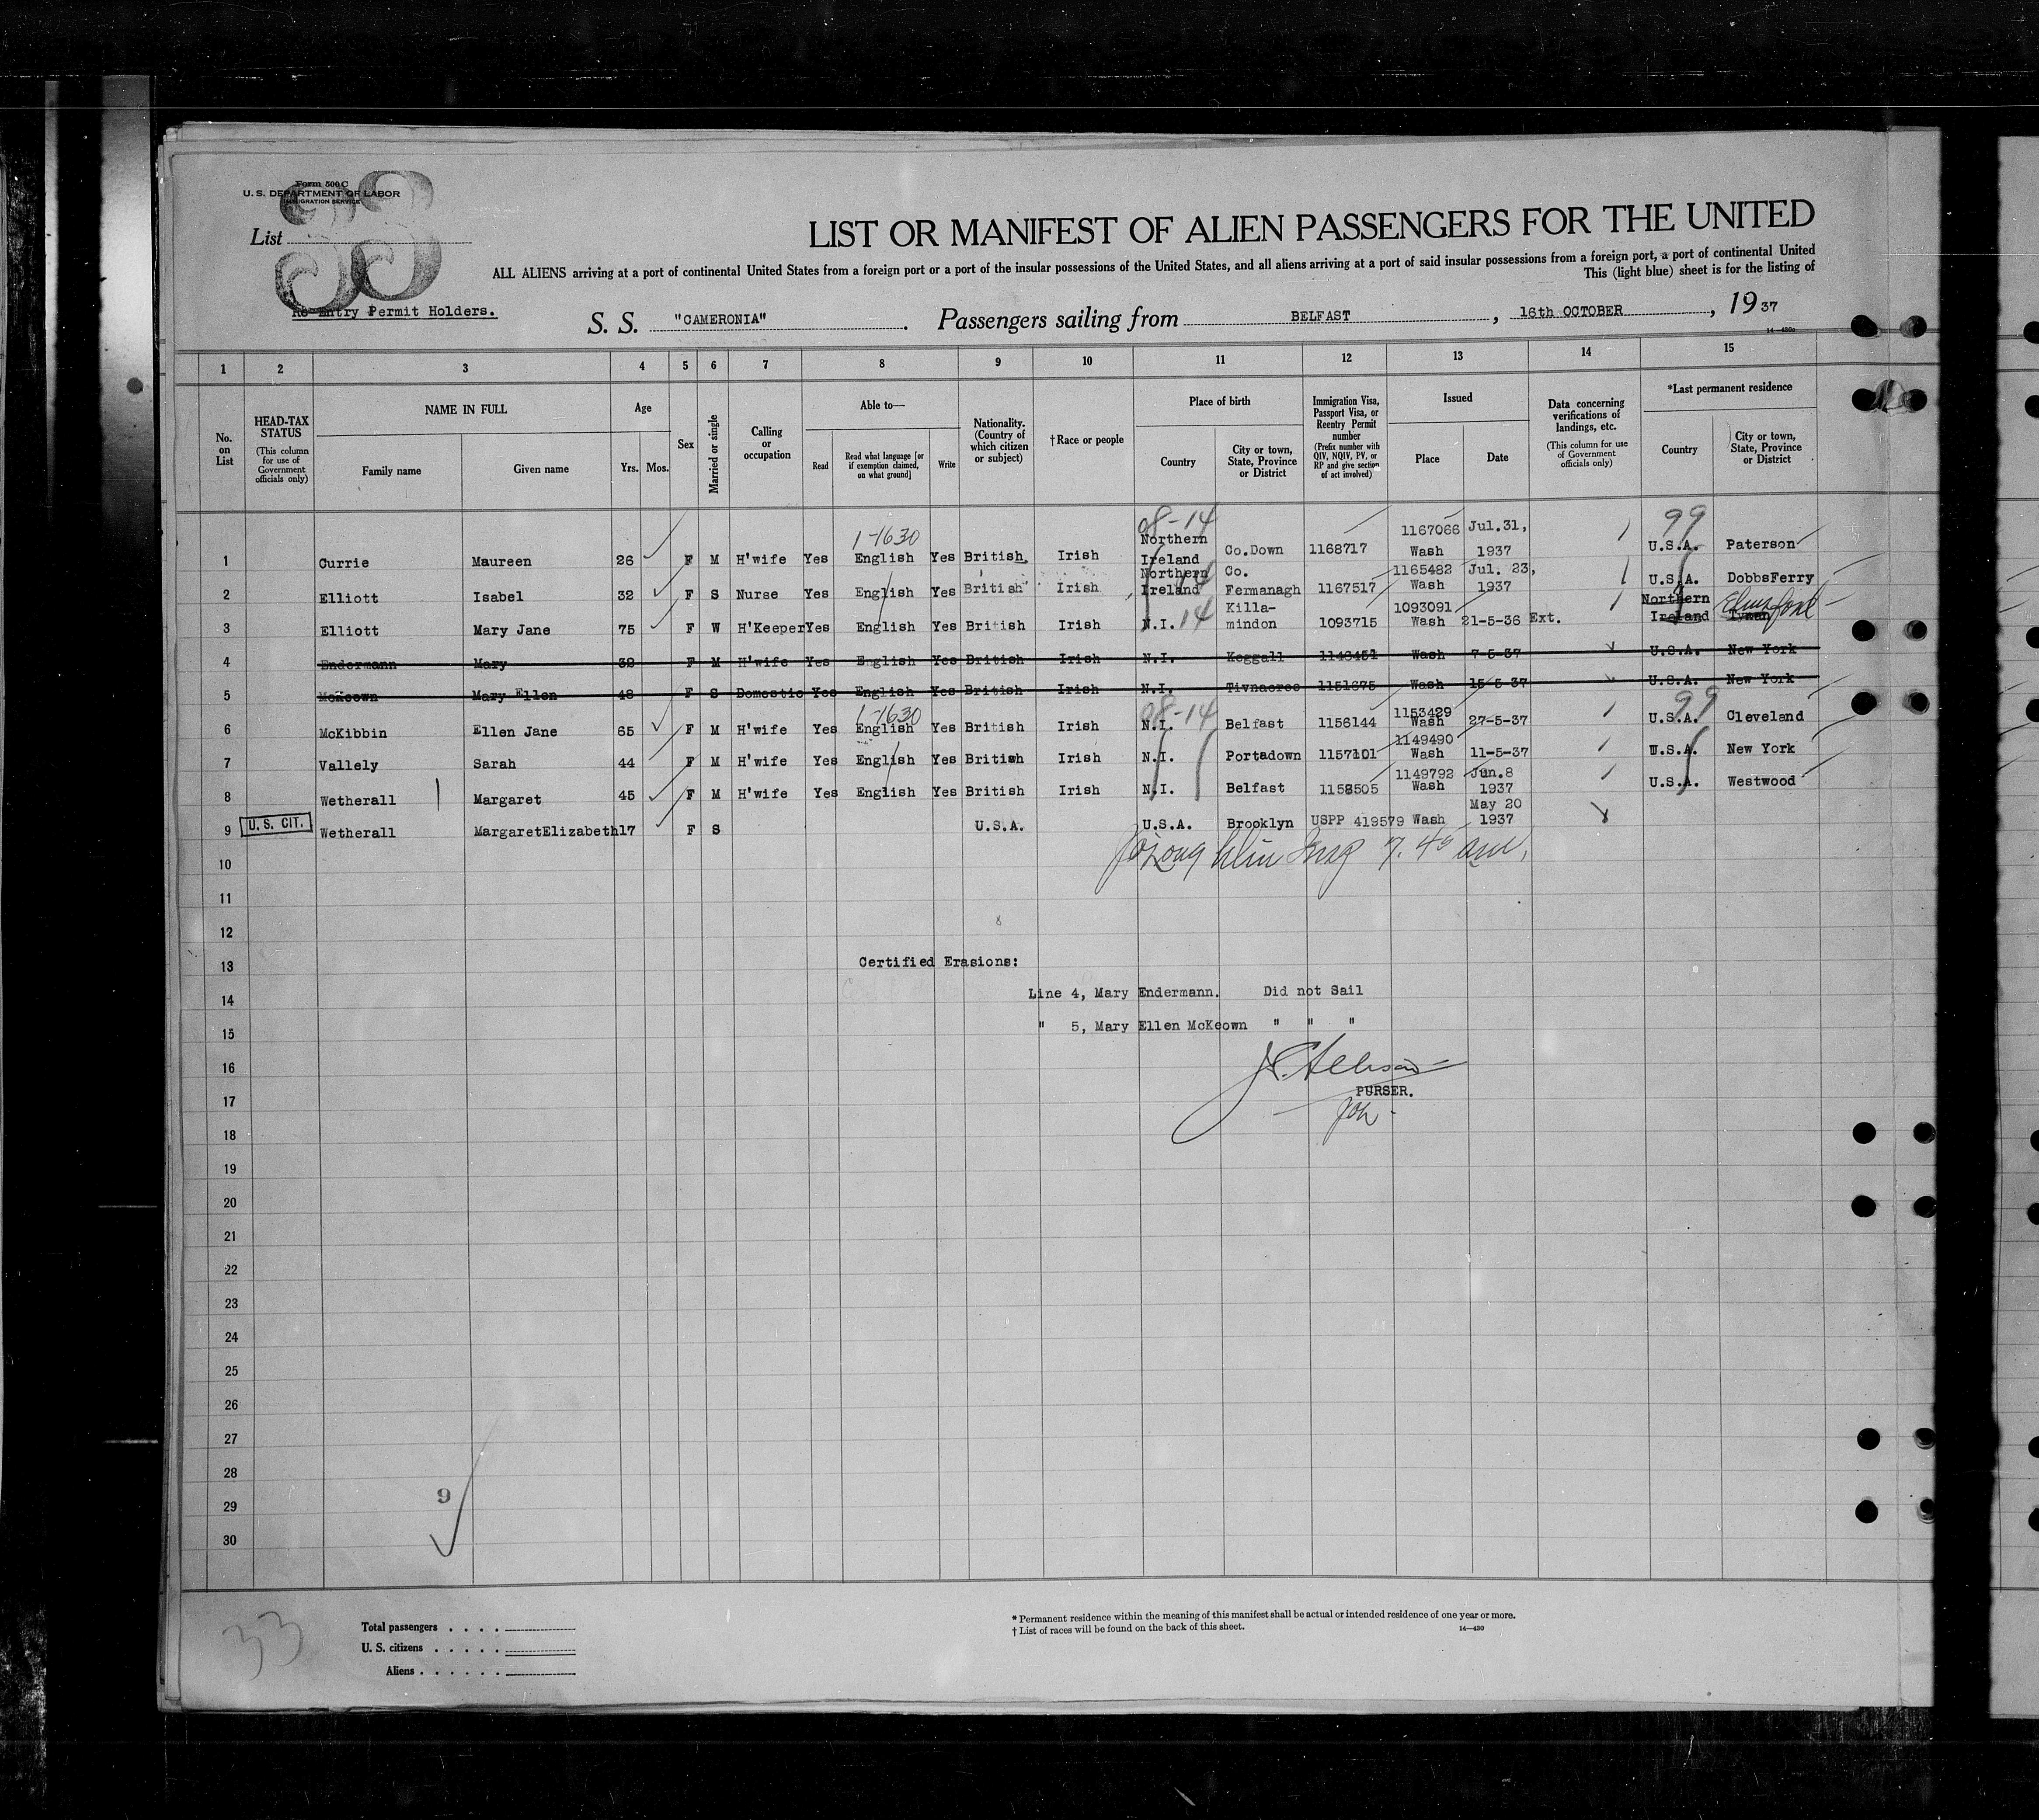 Form 500 C
U. S. DEPARTMENT OF LABOR
IMMIGRATION SERVICE
33
List
LIST OR MANIFEST OF ALIEN PASSENGERS FOR THE UNITED
ALL ALIENS arriving at a port of continental United States from a foreign port or a port of the insular possessions of the United States, and all aliens arriving at a port of said insular possessions from a foreign port, a port of continental United
This (light blue) sheet is for the listing of
Re-Entry Permit Holders.
S. S. "CAMERONIA". Passengers sailing from BELFAST, 16th OCTOBER, 1937
14—430c
1 2 3 4 5 6 7 8 9 10 11 12 13 14 15
No. on List
HEAD-TAX STATUS (This column for use of Government officials only)
NAME IN FULL
Family name
Given name
Age
Yrs.
Mos.
Sex
Married or single
Calling or occupation
Able to—
Read
Read what language [or if exemption claimed, on what ground]
Write
Nationality. (Country of which citizen or subject)
†Race or people
Place of birth
Country
City or town, State, Province or District
Immigration Visa, Passport Visa, or Reentry Permit number (Prefix number with QIV, NQIV, PV, or RP and give section of act involved)
Issued
Place
Date
Data concerning verifications of landings, etc. (This column for use of Government officials only)
*Last permanent residence
Country
City or town, State, Province or District
1-1630 08-14 99
1 Currie Maureen 26 F M H'wife Yes English Yes British Irish Northern Ireland Co.Down 1168717 1167066 Wash Jul.31, 1937 U.S.A. Paterson
2 Elliott Isabel 32 F S Nurse Yes English Yes British Irish Northern Ireland Co. Fermanagh 1167517 1165482 Wash Jul. 23, 1937 U.S.A. DobbsFerry
3 Elliott Mary Jane 75 F W H'Keeper Yes English Yes British Irish N.I. 14 Killa-mindon 1093715 1093091 Wash 21-5-36 Ext. Northern Ireland Tynan Elmsford
4 Endermann Mary 38 F M H'wife Yes English Yes British Irish N.I. Keggall 1148451 Wash 7-5-37 U.S.A. New York
5 McKeown Mary Ellen 48 F S Domestic Yes English Yes British Irish N.I. Tivnacree 1151675 Wash 15-5-37 U.S.A. New York
1-1630 08-14 99
6 McKibbin Ellen Jane 65 F M H'wife Yes English Yes British Irish N.I. Belfast 1156144 1153429 Wash 27-5-37 U.S.A. Cleveland
7 Vallely Sarah 44 F M H'wife Yes English Yes British Irish N.I. Portadown 1157101 1149490 Wash 11-5-37 U.S.A. New York
8 Wetherall Margaret 45 F M H'wife Yes English Yes British Irish N.I. Belfast 1158505 1149792 Wash Jun.8 1937 U.S.A. Westwood
U. S. CIT.
9 Wetherall MargaretElizabeth 17 F S U.S.A. U.S.A. Brooklyn USPP 419579 Wash May 20 1937
10
11
12
13 Certified Erasions:
14 Line 4, Mary Endermann. Did not Sail
15 " 5, Mary Ellen McKeown " " "
16
17 PURSER.
18
19
20
21
22
23
24
25
26
27
28
29 9
30
33
Total passengers . . . .
U. S. citizens . . . . .
Aliens . . . . . .
* Permanent residence within the meaning of this manifest shall be actual or intended residence of one year or more.
† List of races will be found on the back of this sheet.
14—430